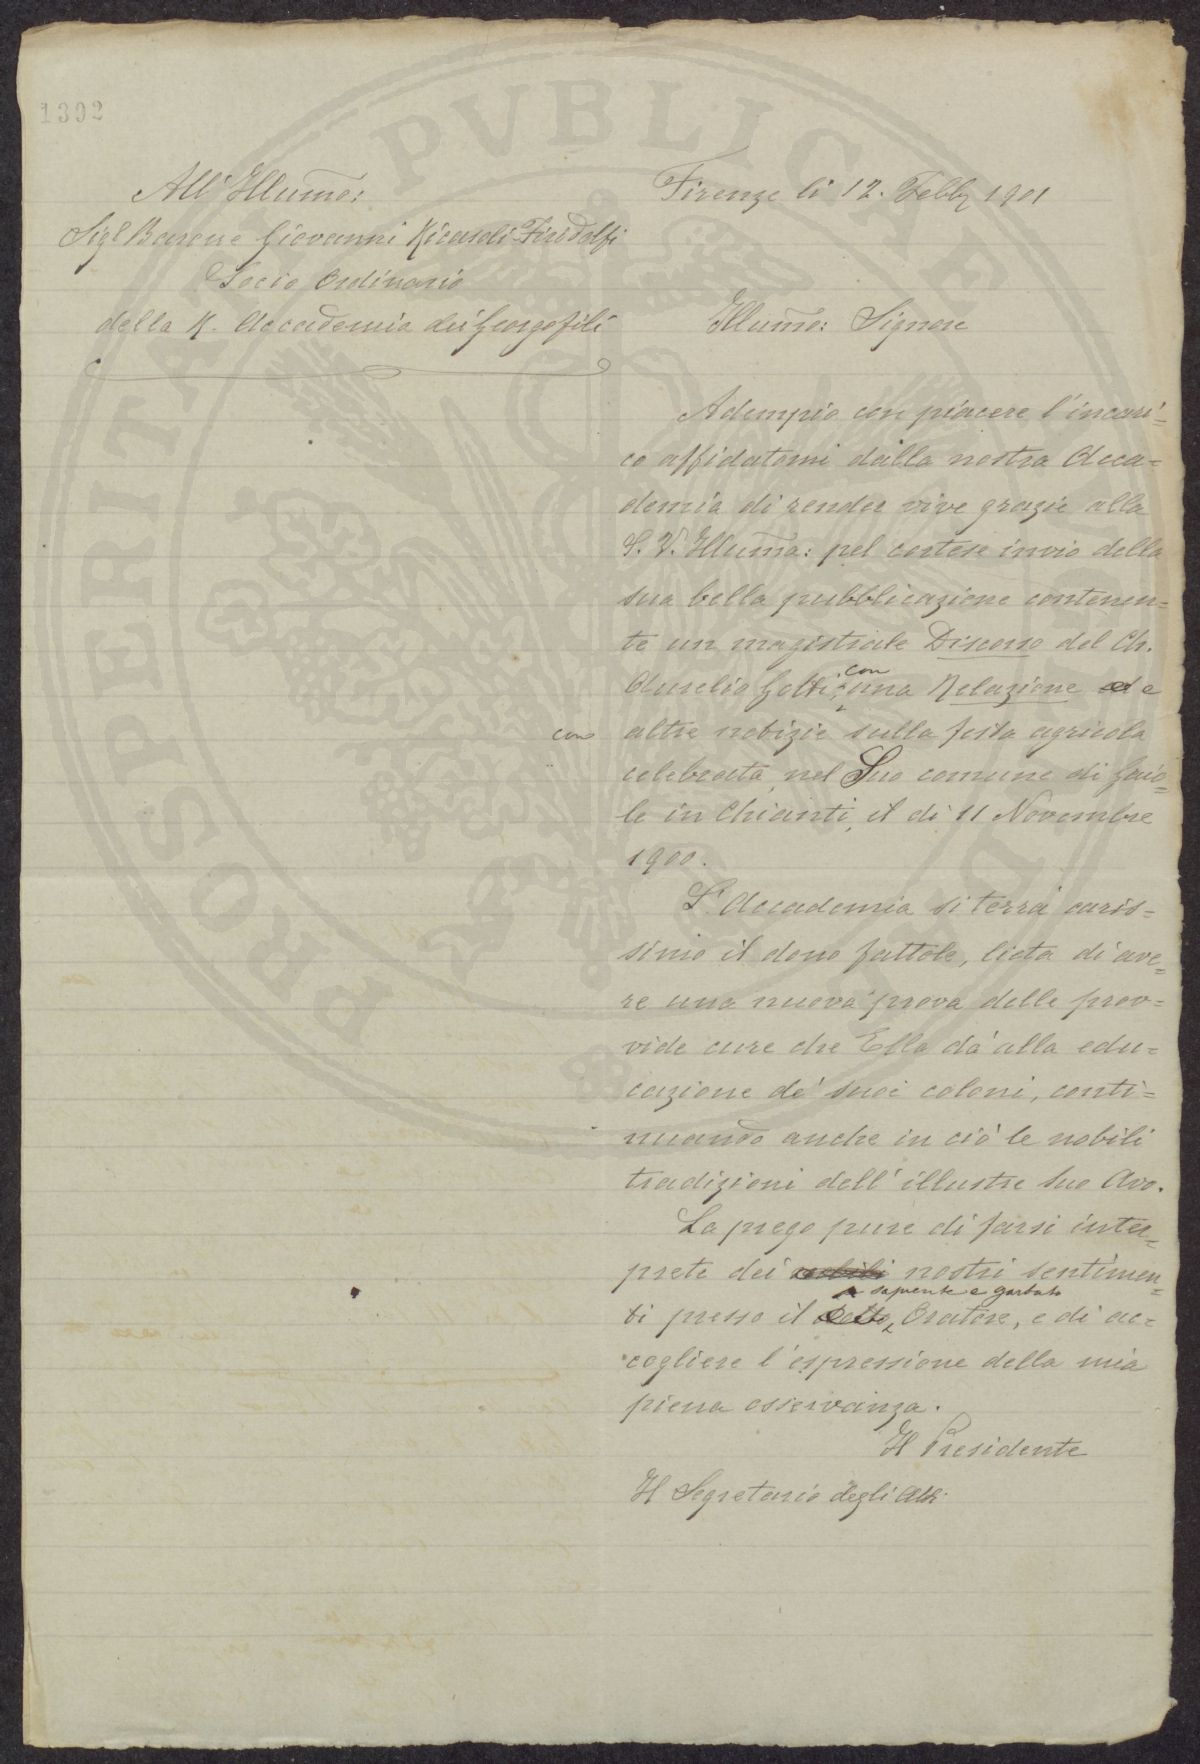 1392
All' Illumo:
Sigr Barone Giovanni Ricasoli Firidolfi
Socio Ordinario
della R. Accademia dei Georgofili
Firenze li 12. Febbo 1901
Illumo: Signore
Adempio con piacere l'incari=
co affidatomi dalla nostra Acca=
demia di render vive grazie alla
S. V. Illuma: pel cortese invio della
sua bella pubblicazione contenen=
te un magistrale Discorso del Ch.
con
Aurelio Gotti; una Relazione ed e
con
altre notizie sulla festa agricola
celebrata, nel Suo comune di Gaio=
le in Chianti, il dì 11 Novembre
1900.
L'Accademia si terrà caris=
simo il dono fattole, lieta di ave=
re una nuova prova delle prov=
vide cure che Ella dà alla edu=
cazione de' suoi coloni, conti=
nuando anche in ciò le nobili
tradizioni dell'illustre Suo Avo.
La prego pure di farsi inter=
prete dei nobili nostri sentimen=
sapiente e garbato
ti presso il dotto Oratore, e di ac=
cogliere l'espressione della mia
piena osservanza.
Il Presidente
Il Segretario degli Atti.
PROSPERITATI PVBLICAE AVGENDAE